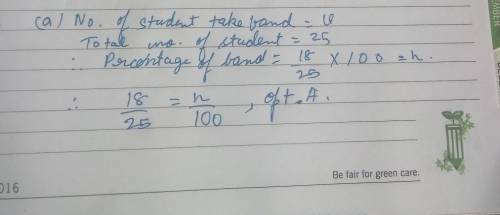 (a) No. of student take band = 18
Total no. of student = 25
∴ Percentage of band = 18/25 × 100 = n.
∴ 18/25 = n/100 , opt. A.
016
Be fair for green care.